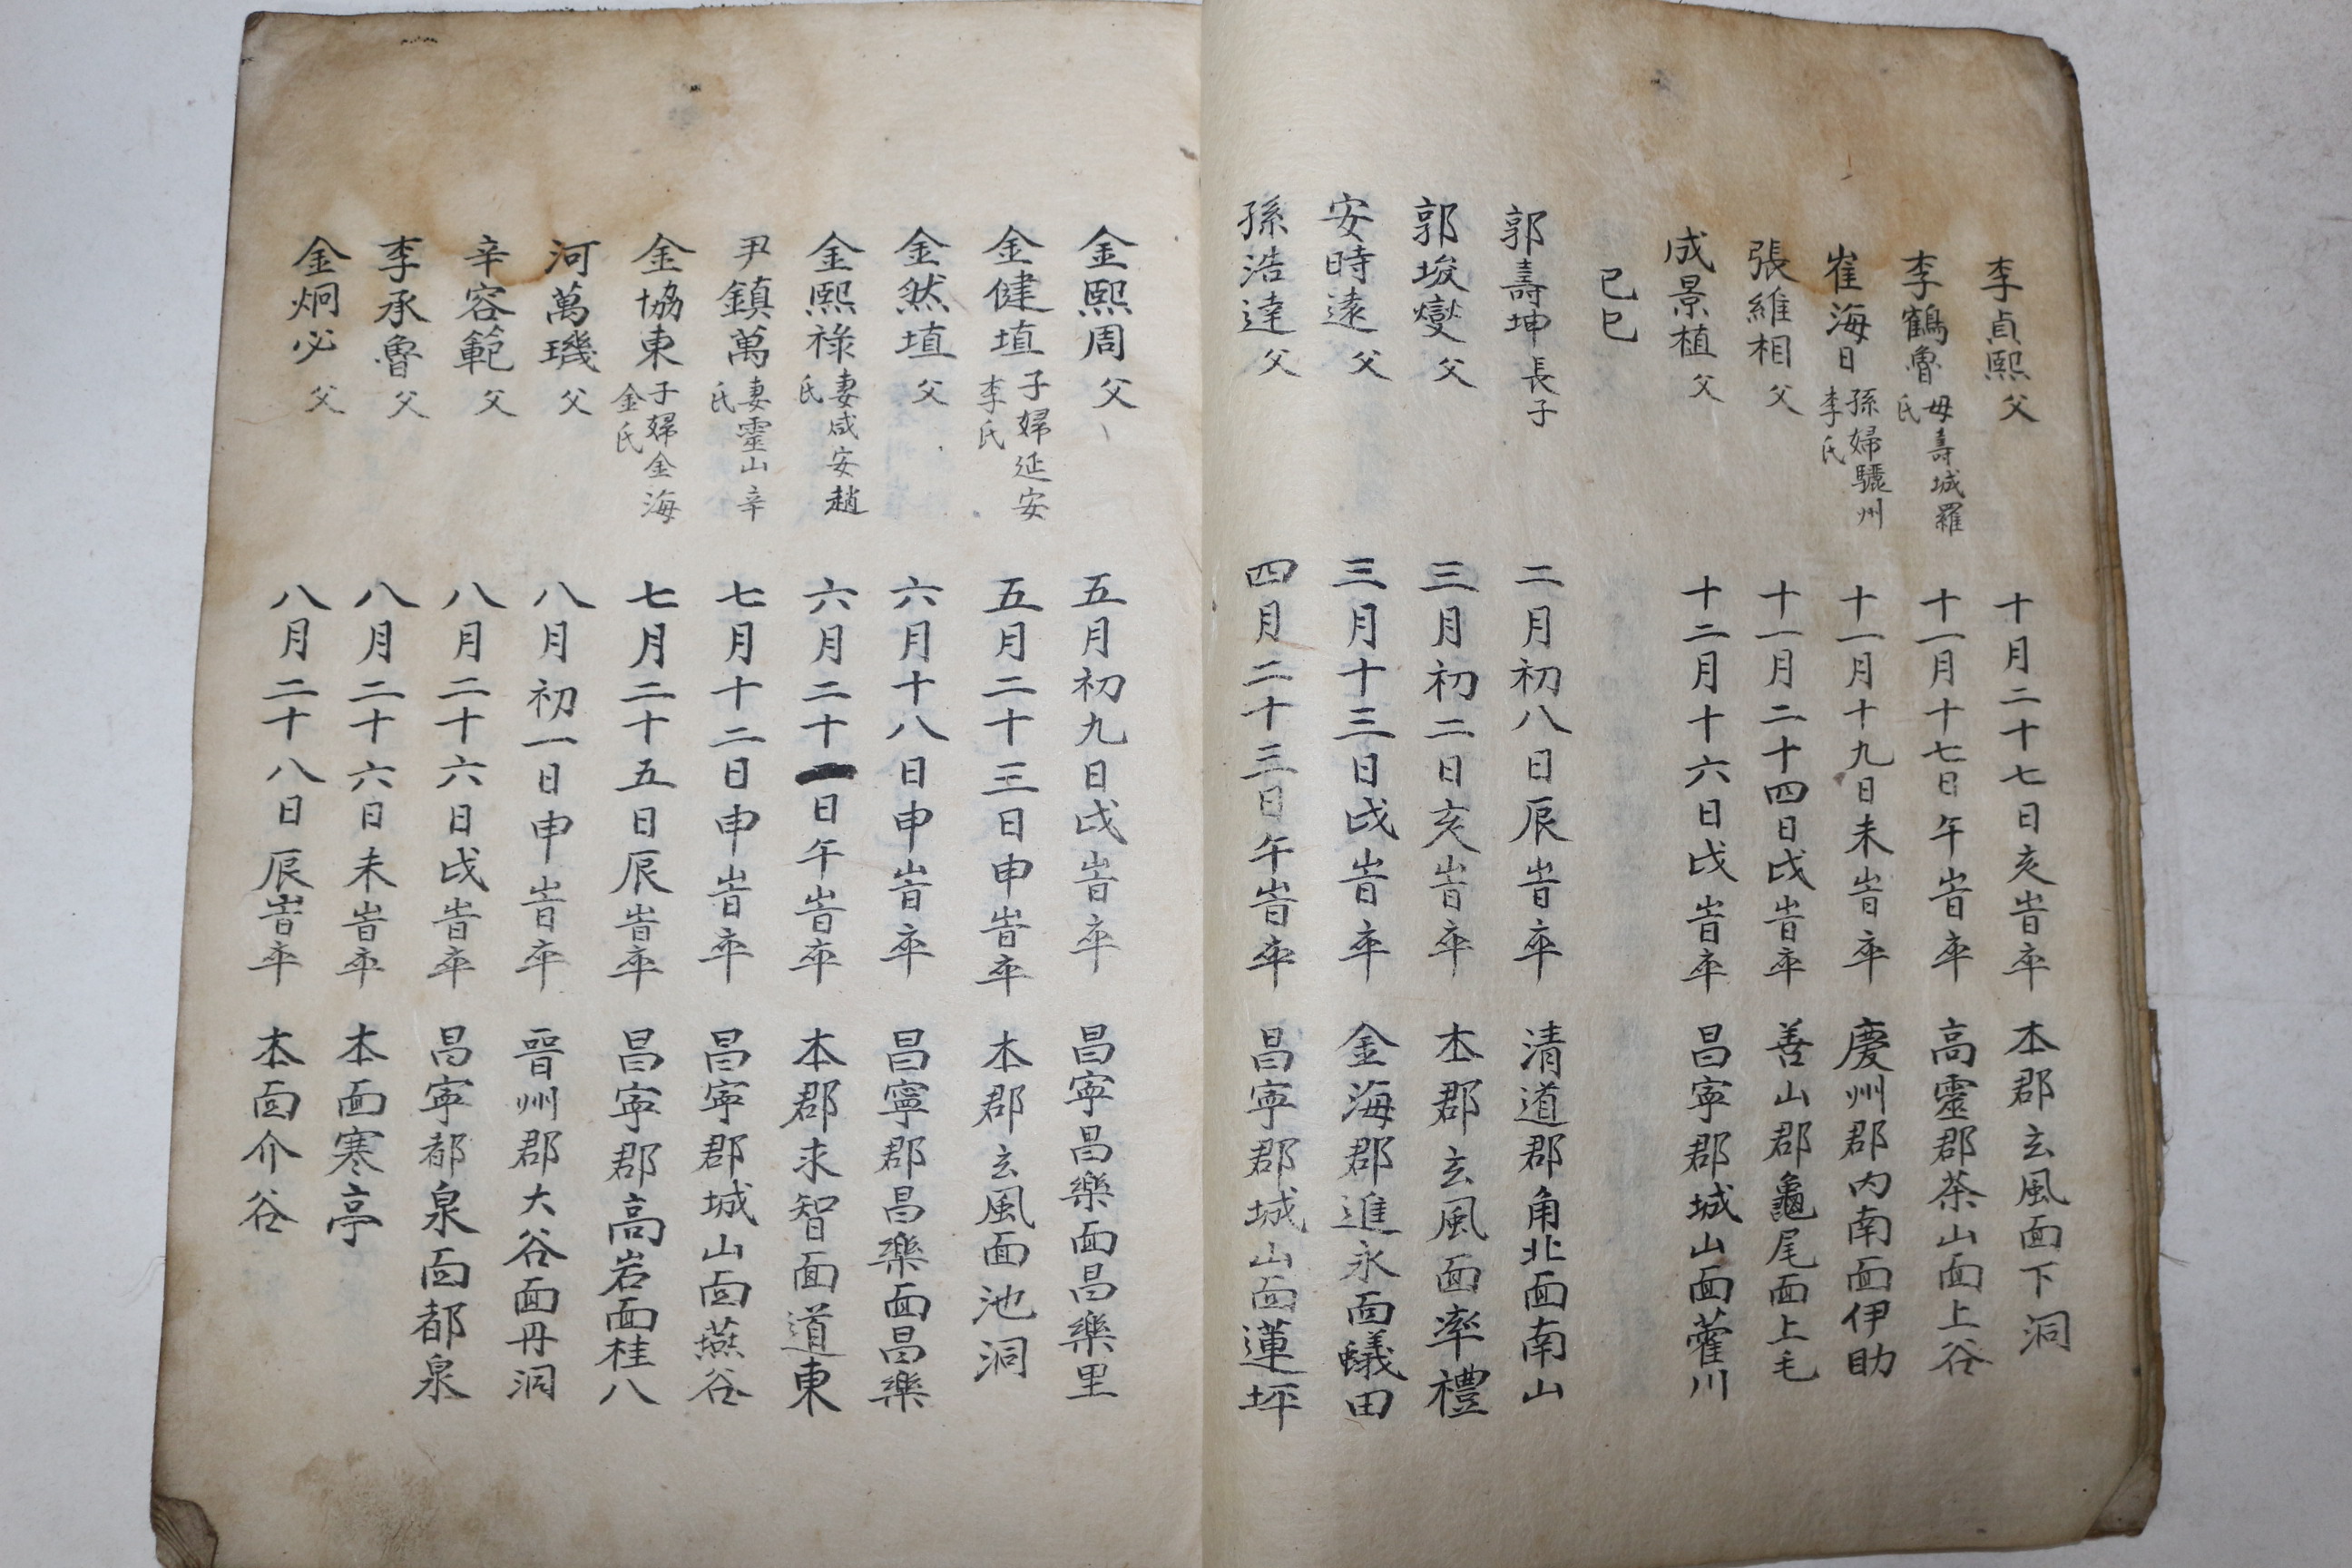 李貞熙父 十月二十七日亥峕卒 本郡玄風面下洞
李鶴魯母壽城羅氏 十一月十七日午峕卒 高靈郡茶山面上谷
崔海日孫婦驪州李氏 十一月十九日未峕卒 慶州郡内南面伊助
張維相父 十一月二十四日戌峕卒 善山郡龜尾面上毛
成景植父 十二月十六日戌峕卒 昌寧郡城山面藿川
己巳
郭壽坤長子 二月初八日辰峕卒 清道郡角北面南山
郭埈燮父 三月初二日亥峕卒 本郡玄風面率禮
安時遠父 三月十三日戌峕卒 金海郡進永面蟻田
孫浩達父 四月二十三日午峕卒 昌寧郡城山面蓮坪
金熙周父 五月初九日戌峕卒 昌寧昌樂面昌樂里
金健埴子婦延安李氏 五月二十三日申峕卒 本郡玄風面池洞
金然埴父 六月十八日申峕卒 昌寧郡昌樂面昌樂
金熙祿妻咸安趙氏 六月二十一日午峕卒 本郡求智面道東
尹鎮萬妻靈山辛氏 七月十二日申峕卒 昌寧郡城山面燕谷
金協東子婦金海金氏 七月二十五日辰峕卒 昌寧郡高岩面桂八
河萬璣父 八月初一日申峕卒 晋州郡大谷面丹洞
辛容範父 八月二十六日戌峕卒 昌寧都泉面都泉
李承魯父 八月二十六日未峕卒 本面寒亭
金炯必父 八月二十八日辰峕卒 本面介谷